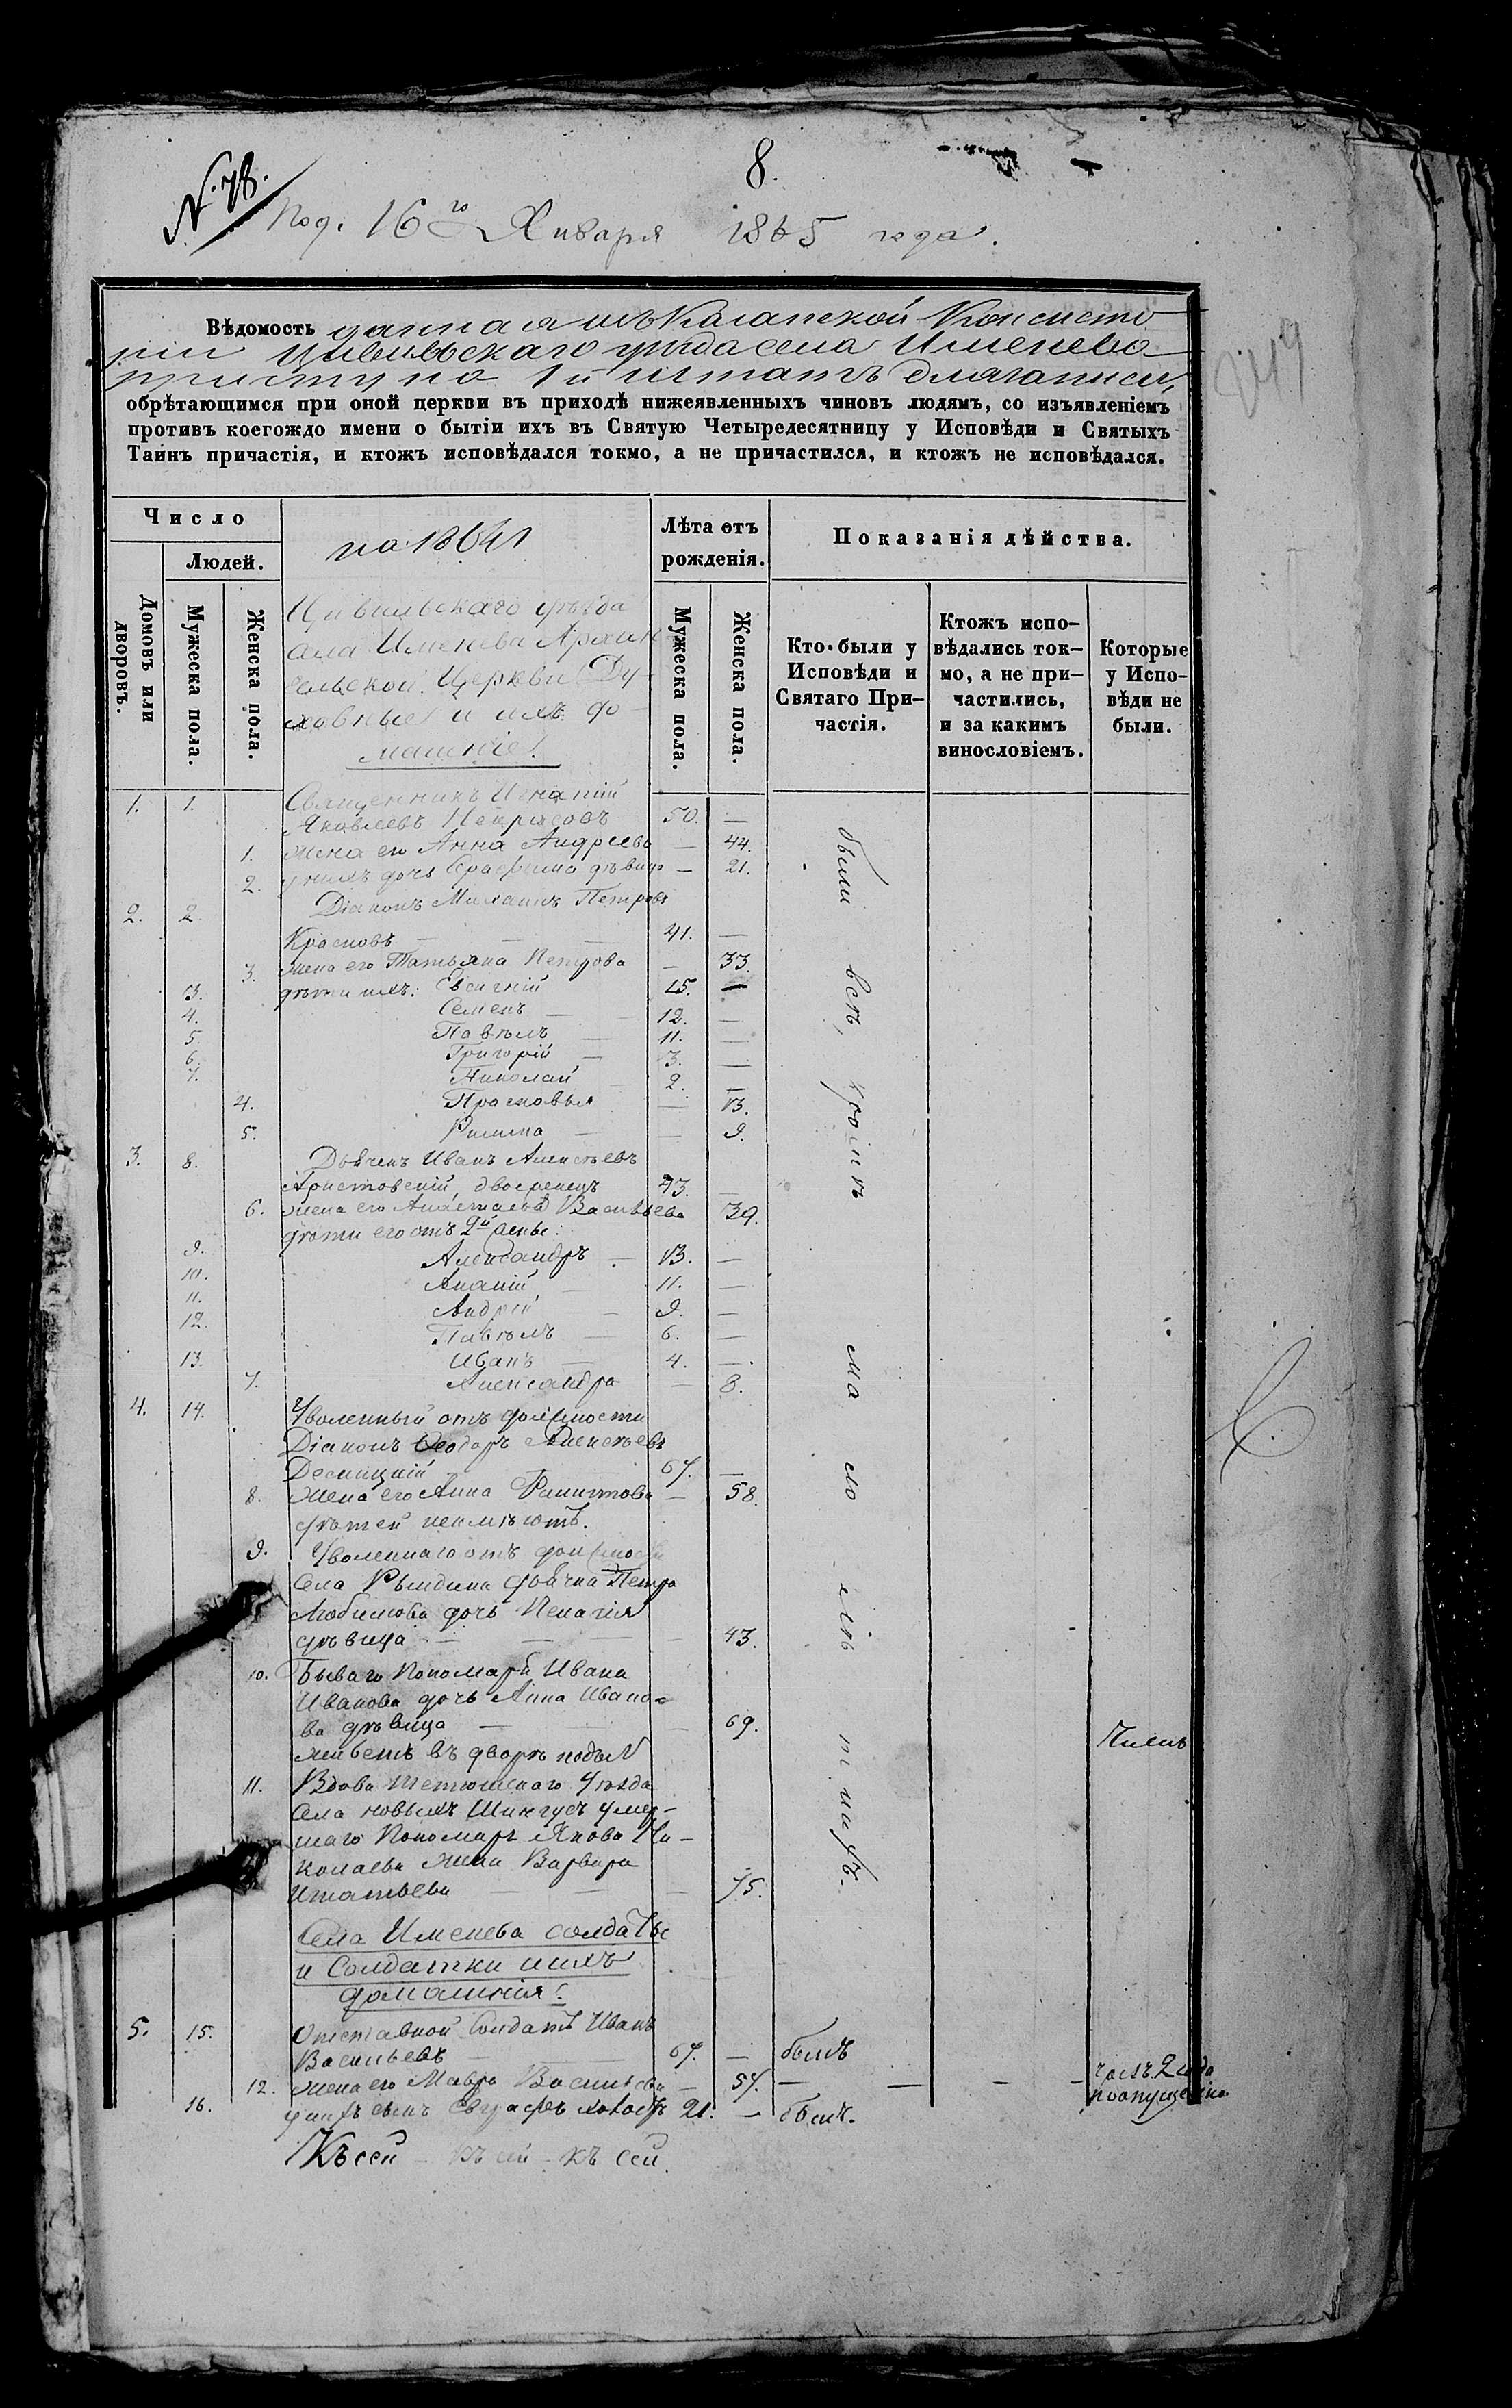 8.
N. 78.
Под. 16го Января 1865 года.
Вѣдомость данная изъ Казанской Консисто
ріи Цивильскаго уѣзда села Именево
причту на 1й штатъ для записи,
обрѣтающимся при оной церкви въ приходѣ нижеявленныхъ чиновъ людямъ, со изъявленіемъ
противъ коегождо имени о бытіи ихъ въ Святую Четыредесятницу у Исповѣди и Святыхъ
Таинъ причастія, и ктожъ исповѣдался токмо, а не причастился, и ктожъ не исповѣдался.
Число
Людей.
Домовъ или дворовъ.
Мужеска пола.
Женска пола.
на 1864
Цивильскаго уѣзда
села Именева Архан
гельской Церкви Ду-
ховные и ихъ до-
машніе.
Лѣта отъ
рожденія.
Мужеска пола.
Женска пола.
Показанія дѣйства.
Кто были у
Исповѣди и
Святаго При-
частія.
Ктожъ испо-
вѣдались ток-
мо, а не при-
частились,
и за какимъ
винословіемъ.
Которые
у Испо-
вѣди не
были.
1. 1. Священникъ Игнатій
Яковлевъ Некрасовъ 50. —
1. жена его Анна Андреева — 44.
2. у нихъ дочь Серафима дѣвица — 21.
2. 2. Діаконъ Михаилъ Петровъ
Красновъ — — 41. —
3. жена его Татьяна Петрова — 33.
3. дѣти ихъ: Евгеній 15. —
4. Семенъ — 12. —
5. Павелъ — 11. —
6. Григорій — 3. —
7. Николай 2. —
4. Прасковья — 13.
5. Римма — — 9.
3. 8. Дьячекъ Иванъ Алексѣевъ
Аристовскій, двоеженецъ 43. —
6. жена его Анастасья Васильева 39.
дѣти его отъ 2й жены:
9. Александръ — 13. —
10. Ананій — 11. —
11. Андрей — 9. —
12. Павелъ — 6. —
13. Иванъ — 4. —
7. Александра — 8.
4. 14. Уволенный отъ должности
Діаконъ Ѳеодоръ Алексѣевъ
Десницкій 67. —
8. жена его Анна — 58.
дѣтей неимѣютъ.
9. Уволеннаго отъ должности
села дьячка Петра
Любимова дочь Пелагія
дѣвица — — — — 43.
10. Бываго Пономаря Ивана
Иванова дочь Анна Ивано-
ва дѣвица — — 69.
живетъ въ дворѣ подъ N
11. Вдова Тетюшскаго Уѣзда
села новыхъ умер-
шаго Пономаря Якова Ни-
колаева жена Варвара
Игнатьева — — — 75.
были всѣ, кроимѣ
Села Именева солдаты
и Солдатки ихъ
домашнія.
5. 15. Отставной Солдатъ Иванъ
Васильевъ 67. — былъ
12. жена его Мавра Васильева — 57. — — — 2 года
поопущенію
16. у нихъ сынъ Евграфъ холостъ 21. — былъ.
Къ сей — къ сей — къ сей.